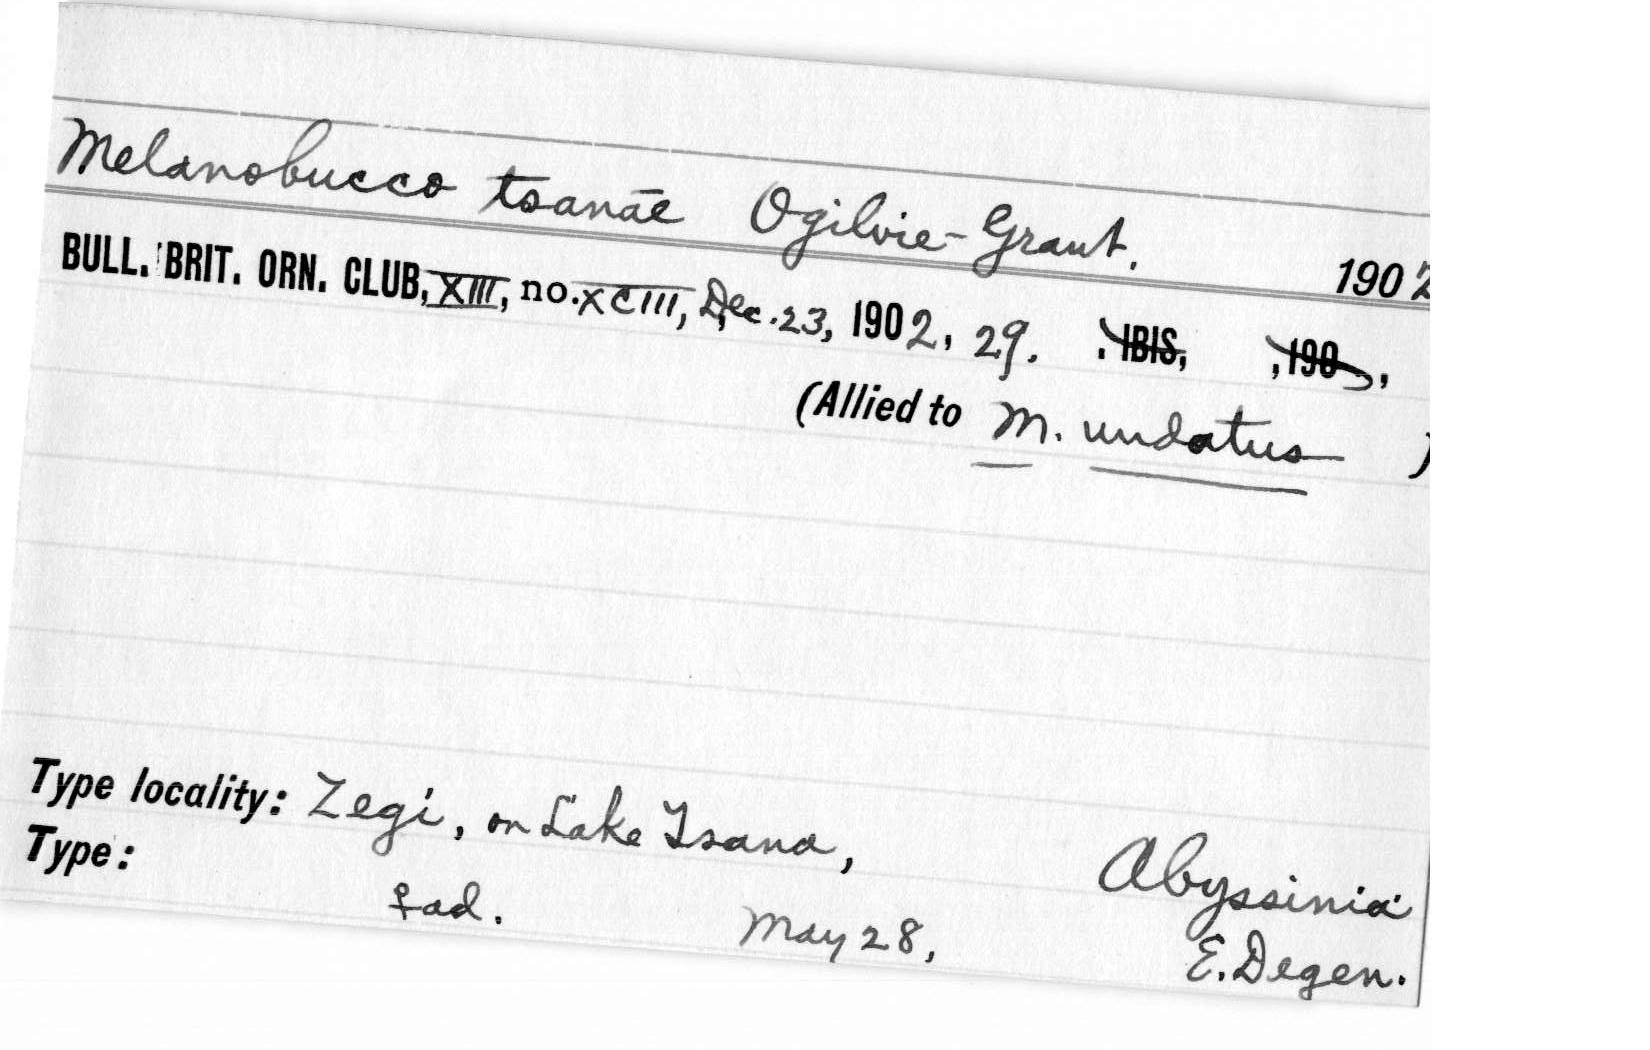 Melanobucco tsanae Ogilvie-Grant. 1902
BULL. BRIT. ORN. CLUB, XIII, no. XCIII, Dec. 23, 1902, 29. . IBIS, , 190 ,
(Allied to M. undatus )
Type locality: Zegi, on Lake Tsana, Abyssinia
Type: ♀ ad. May 28, E. Degen.